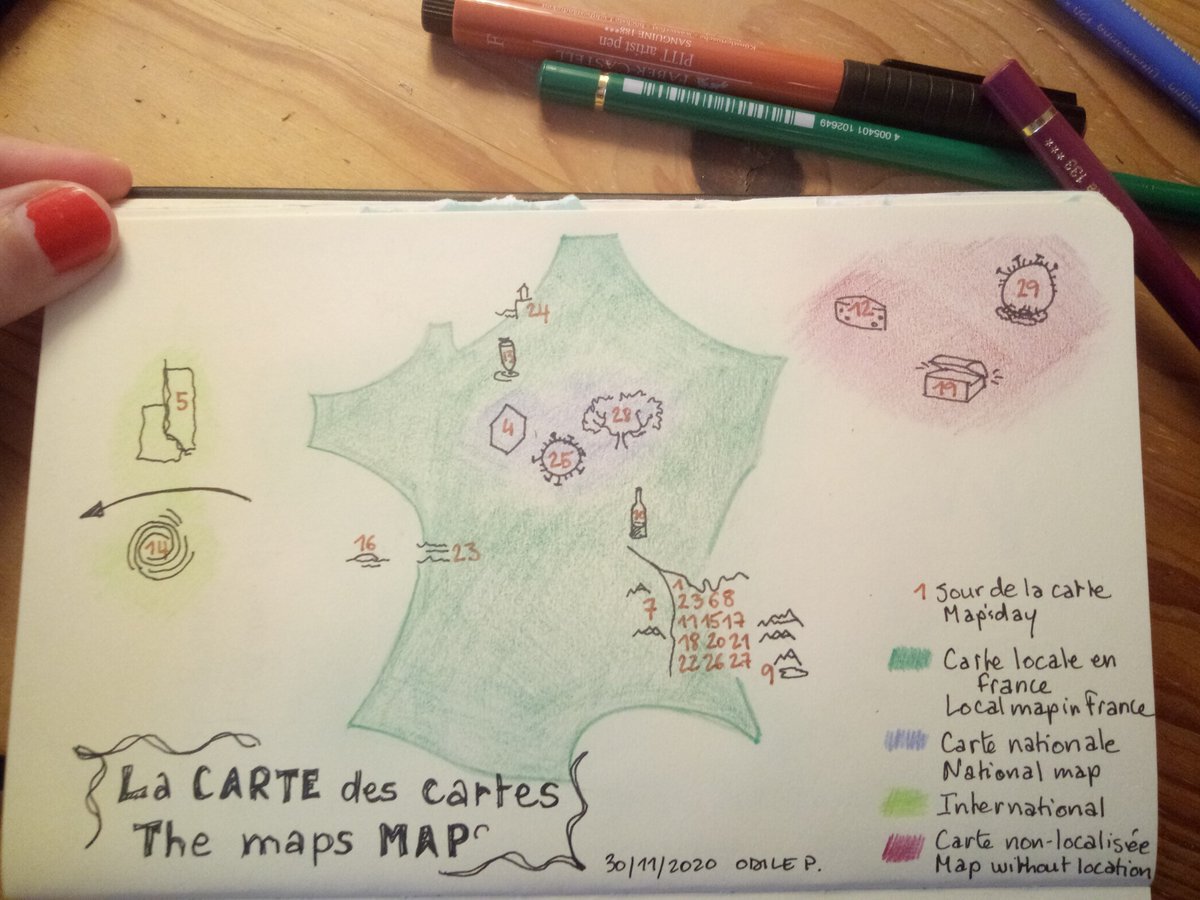 PITT artist pen
SANGUINE 188***
FABER CASTELL
4 005401 102649
133 ***
24
13
12
29
19
5
4
28
25
14
16
23
10
1
7
2 3 6 8
11 15 17
18 20 21
22 26 27
9
1 Jour de la carte
Map'sday
Carte locale en
france
Local map in France
Carte nationale
National map
International
Carte non-localisée
Map without location
La CARTE des cartes
The maps MAP
30/11/2020 ODILE P.